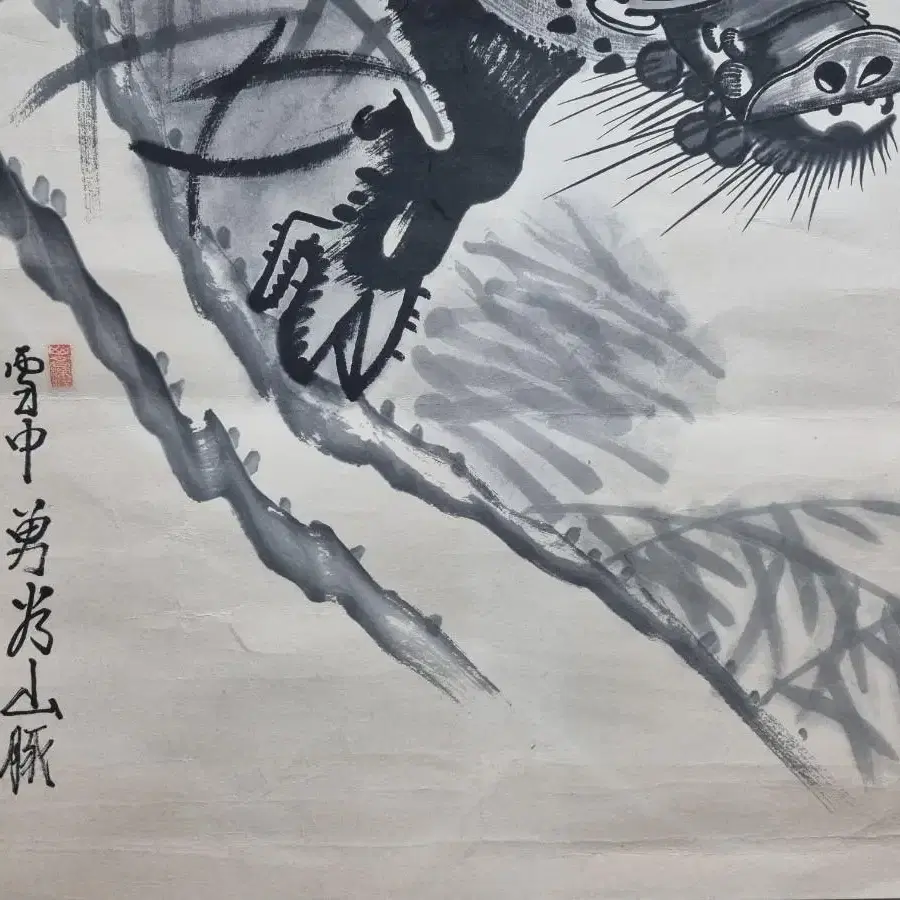 雪中勇为山豚